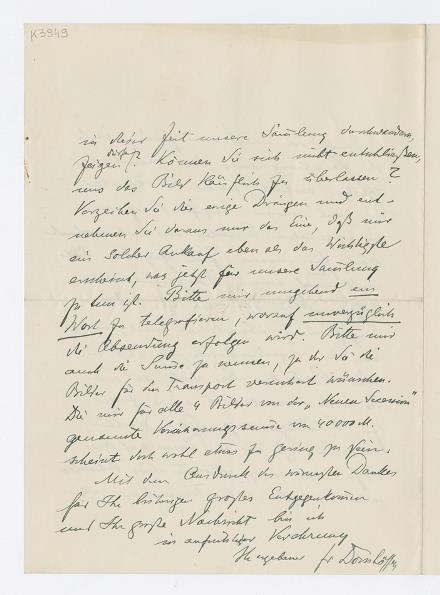 K3949
in dieser Zeit unsere Samlung durchwandern,
dürfte
zeigen!? Können Sie sich nicht entschließen,
uns das Bild käuflich zu überlassen?
Verzeihen Sie das ewige Drängen und ent-
nehmen Sie daraus nur das Eine, daß mir
ein solcher Ankauf eben als das Wichtigste
erscheint, was jetzt für unsere Samlung
zu tun ist. Bitte mir umgehend ein
Wort zu telegrafieren, worauf unverzüglich
die Absendung erfolgen wird. Bitte mir
auch die Summe zu nennen, zu der Sie die
Bilder für den Transport versichert wünschen.
Die mir für alle 4 Bilder von der „Neuen Secession"
genannte Versicherungssumme von 40000 M.
scheint doch wohl etwas zu gering zu sein.
Mit dem Ausdruck des wärmsten Dankes
für Ihr bisheriges großes Entgegenkommen
und Ihr große Nachsicht bin ich
in aufrichtiger Verehrung
Ihr ergebener Fr Dörnhöffer